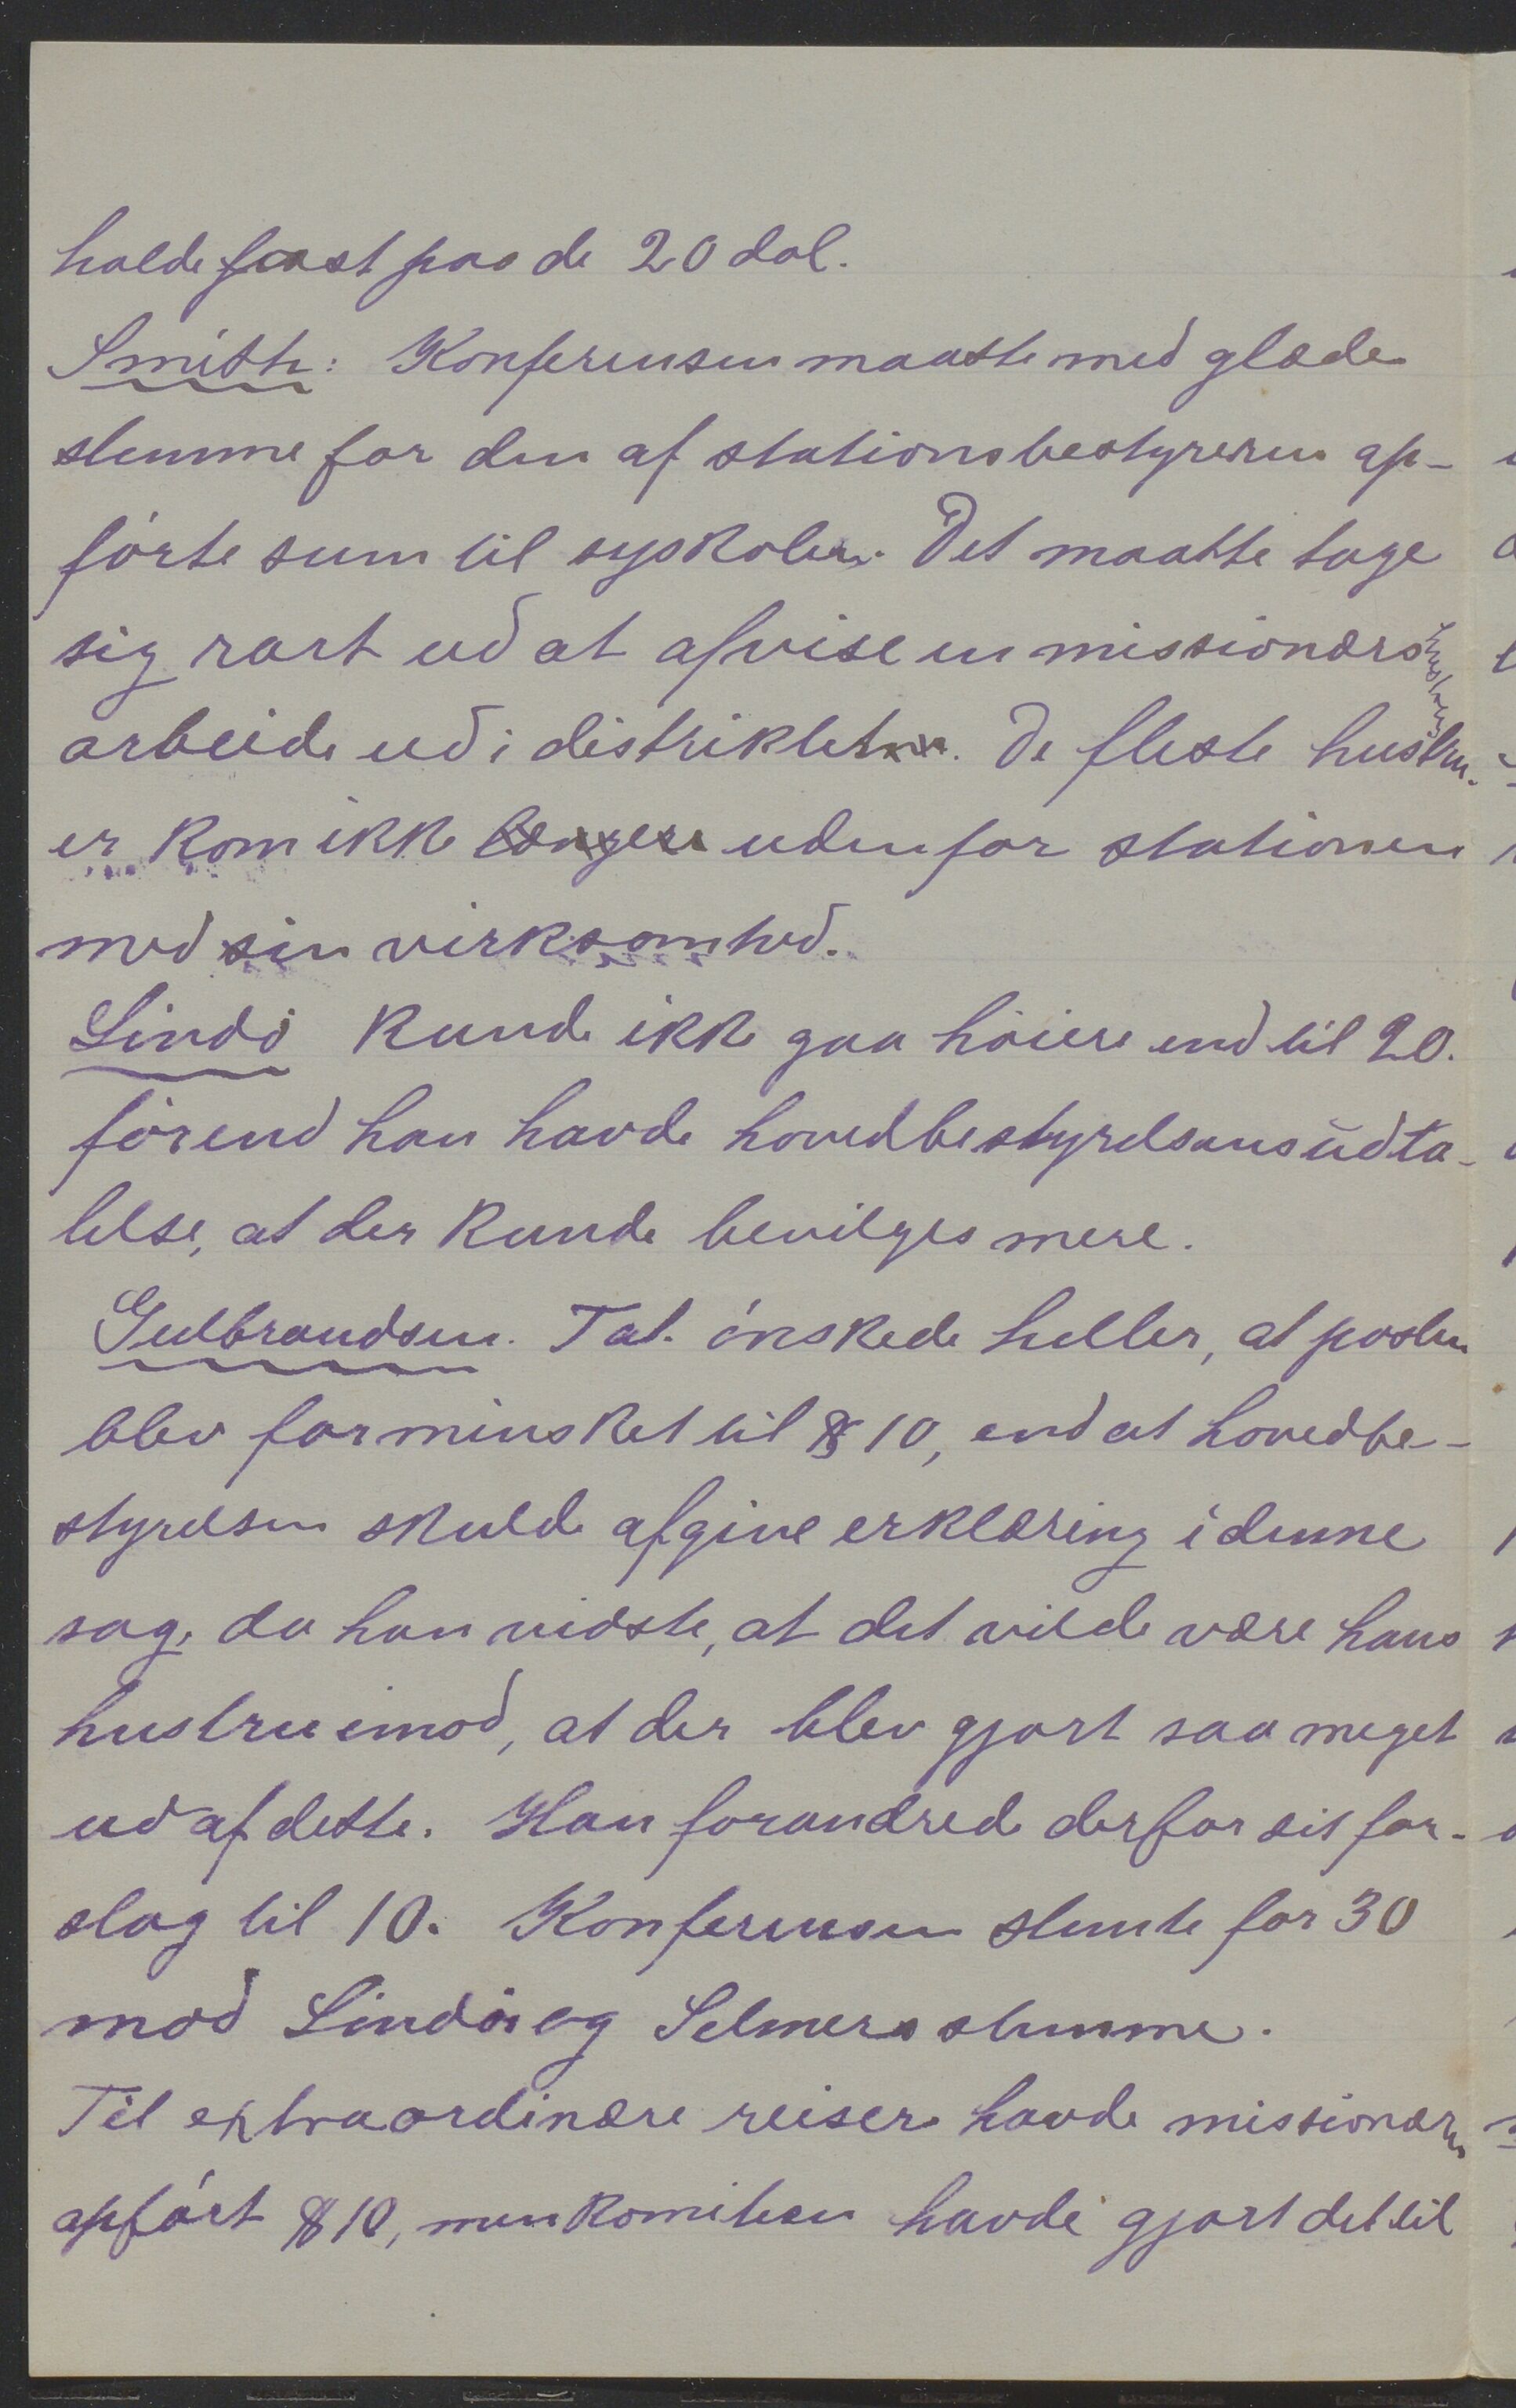 holde fast paa de 20 dol.
Smith: Konferensen maatte med glæde
stemme for den af stationsbestyreren op-
førte sum til syskolen. Det maatte tage
sig rart ud at afvise en missionærshustrus
arbeide ud i distriktet. De fleste hustru-
er kom ikke længere udenfor stationen
med sin virksomhed.
Lindø kunde ikke gaa høiere end til 20.
førend han havde hovedbestyrelsens udta-
lelse, at der kunde bevilges mere.
Gulbrandsen. Tal. ønskede heller, at posten
blev forminsket til $ 10, end at hovedbe-
styrelsen skulde afgive erklæring i denne
sag, da han vidste, at det vilde være hans
hustru imod, at der blev gjort saa meget
ud af dette. Han forandrede derfor sit for-
slag til 10. Konferensen stemte for 30
mod Lindøs og Selmers stemme.
Til extraordinære reiser havde missionæren
opført $ 10, men komiteen havde gjort det til